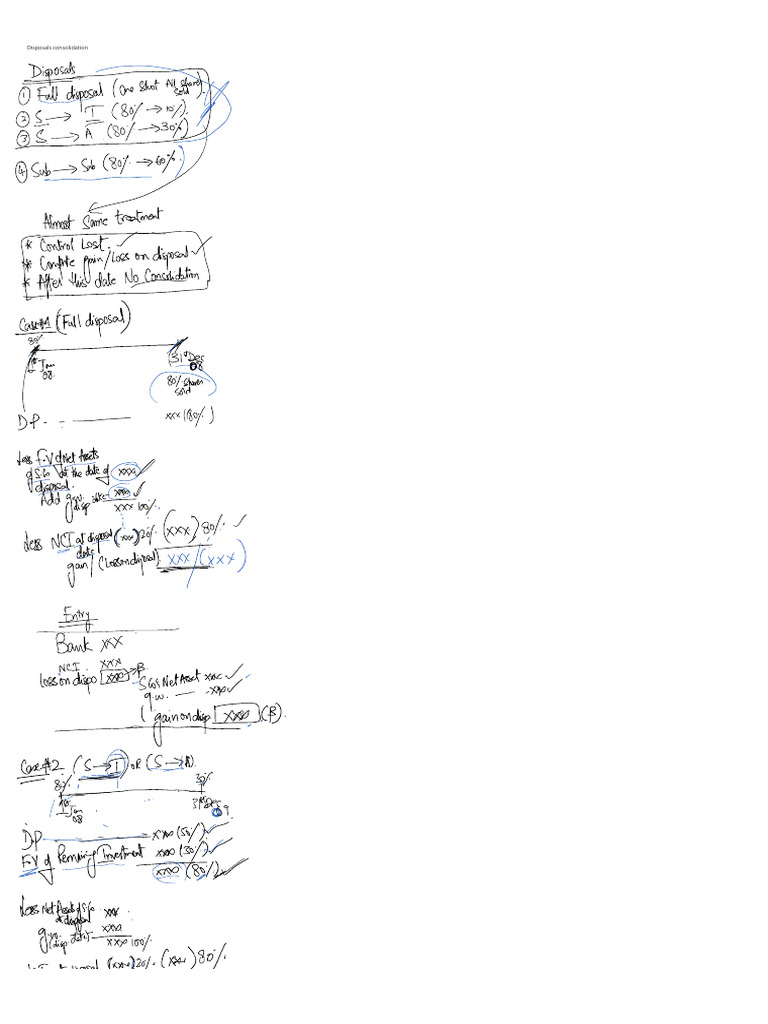 Disposals consolidation
Disposals
① Full disposal (One Shot All shares sold).
② S → I (80% → 10%).
③ S → A (80% → 30%)
④ Sub → Sub (80% → 60%)
Almost Same treatment
* Control Lost.
* Compute gain/Loss on disposal
* After this date No Consolidation
Case#1 (Full disposal)
80%
1st Jan 08
31st Dec 08
80% shares sold
D.P. - xxx (80%)
Less F.V of Net Assets
of S.Co at the date of xxx
disposal.
Add g.w. disp date xxx
xxx 100%
Less NCI at disposal date (xxx) 20% (xxx) 80%
gain / (Loss on disposal) xxx / (xxx)
Entry
Bank xxx
NCI xxx
loss on dispo xxx → β
S Co's Net Asset xxx
g.w. xxx
( gain on disp xxx (β).
Case#2 (S → I) or (S → A)
80% 30%
1st Jan 08
31st Dec 09
D.P xxx (50%)
F.V of Remaining Investment xxx (30%)
xxx (80%)
Less Net Assets of S.Co xxx
at disposal
g.w. (disp. date) xxx
xxx 100%
(xxx) 20% (xxx) 80%